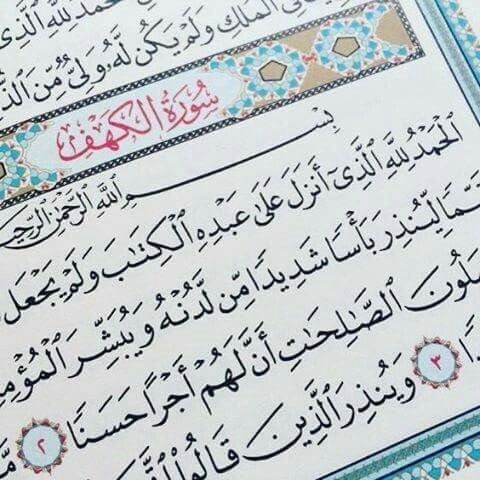 الْحَمْدُ لِلَّهِ الَّذِى
فِى الْمُلْكِ وَلَمْ يَكُن لَّهُۥ وَلِىٌّ مِّنَ
سُورَةُ الْكَهْفِ
بِسْمِ اللَّهِ الرَّحْمَٰنِ الرَّحِيمِ
الْحَمْدُ لِلَّهِ الَّذِىٓ أَنزَلَ عَلَىٰ عَبْدِهِ الْكِتَٰبَ وَلَمْ يَجْعَل
لِّيُنذِرَ بَأْسًا شَدِيدًا مِّن لَّدُنْهُ وَيُبَشِّرَ
الصَّٰلِحَٰتِ أَنَّ لَهُمْ أَجْرًا حَسَنًا ٢
٣ وَيُنذِرَ الَّذِينَ قَالُوا